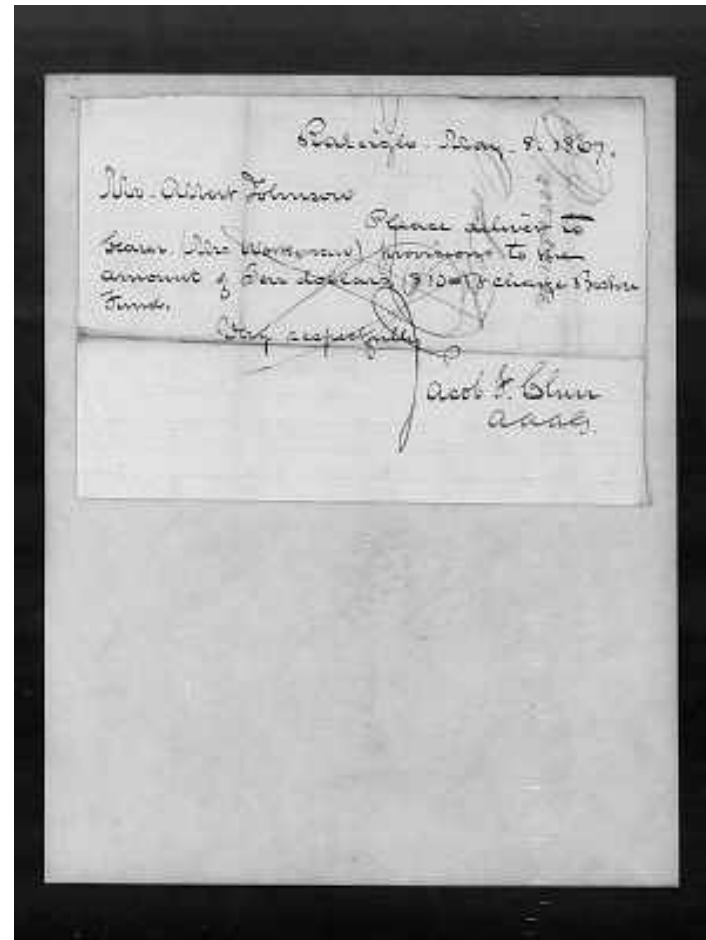 Raleigh. May. 8. 1867.
Mr. Albert Johnson
Please deliver to
bearer (Mrs Workman) provisions to the
amount of Ten dollars ($10 00) & charge Boston
Fund.
Very respectfully
Jacob F. Chur
A.A.A.G.